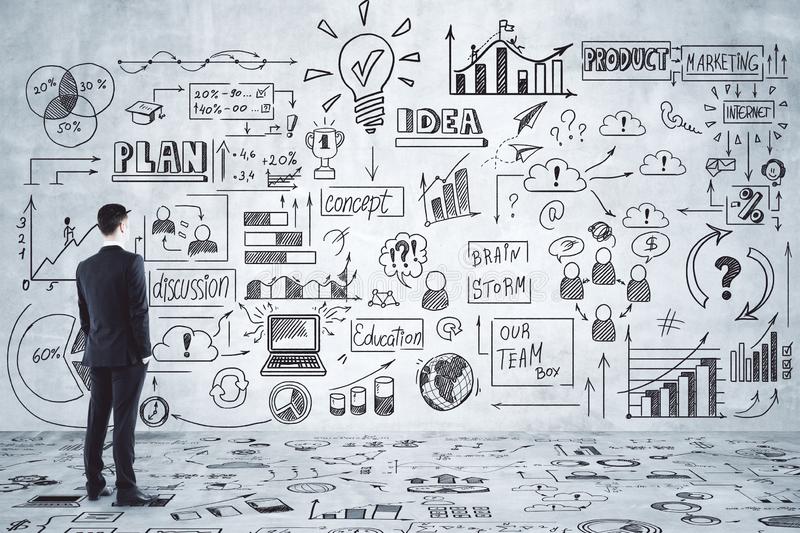 20%
30%
50%
20% - 90...
40% - 00...
PLAN
4,6
3,4
+20%
1
IDEA
PRODUCT
MARKETING
INTERNET
???
!
!
!
%
@
3
2
1
concept
discussion
!?!
BRAIN
STORM
$
?
#
60%
!
Education
OUR
TEAM
BOX